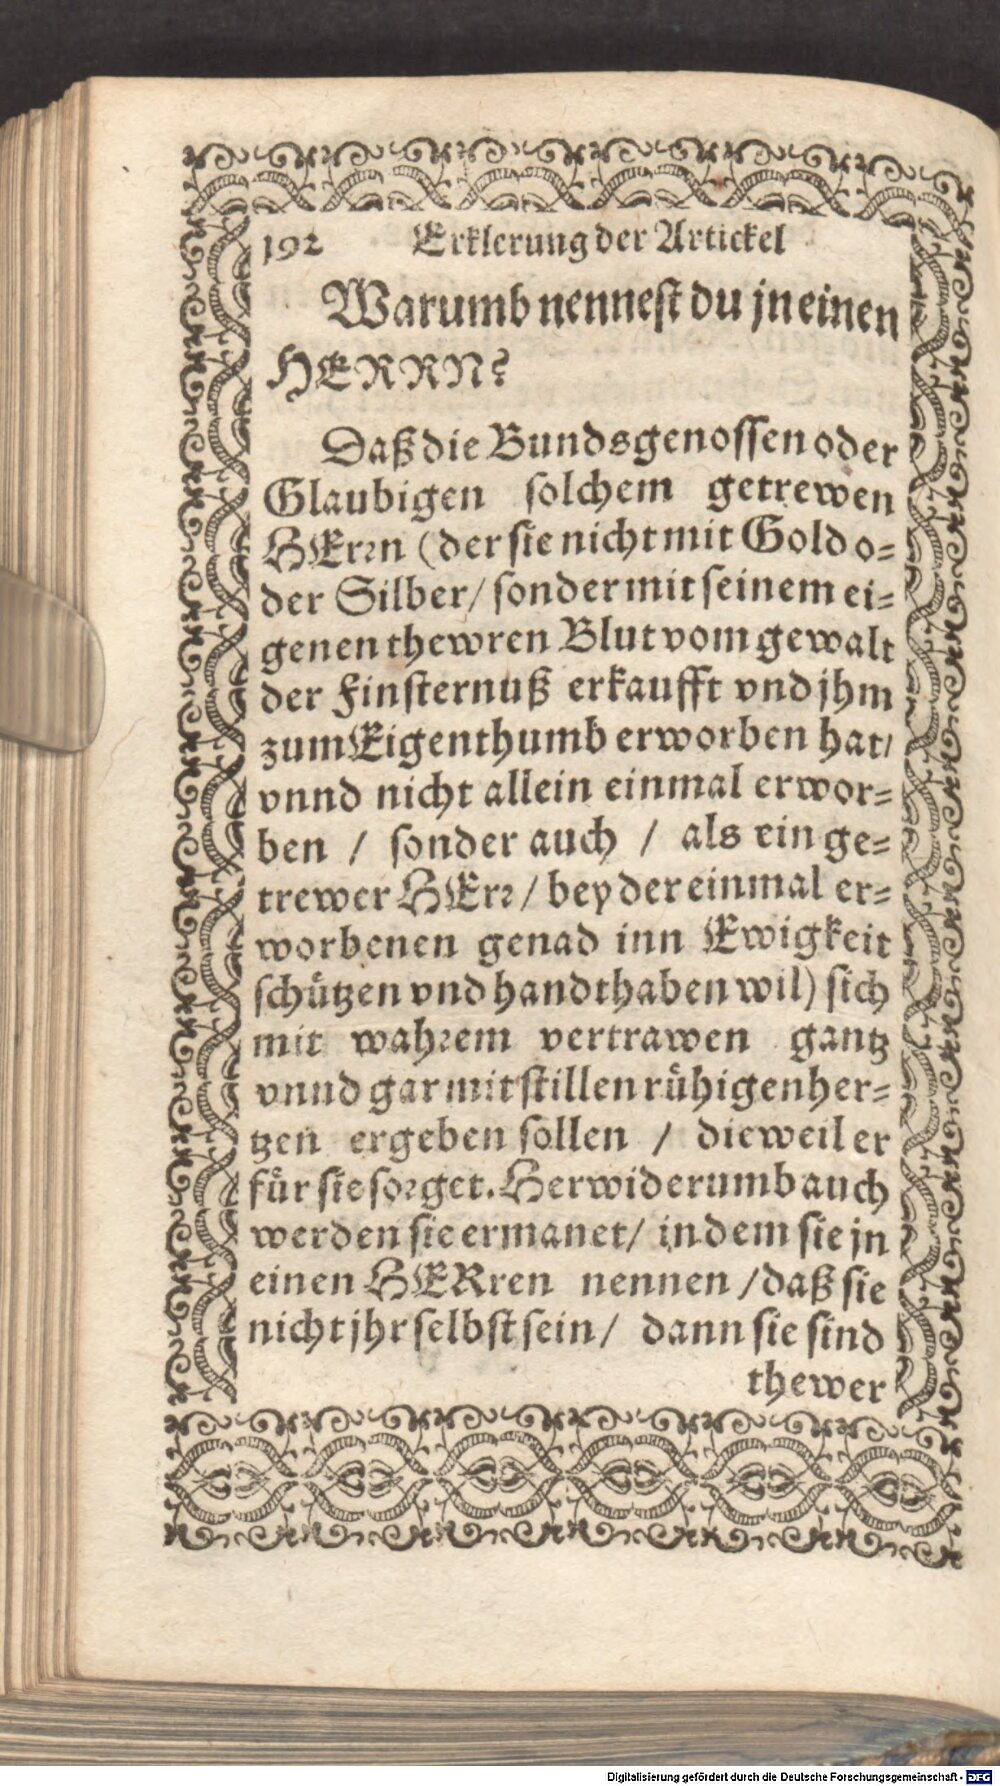 192 Erklerung der Artickel
Warumb nennest du jn einen
HERRN?
Daß die Bundsgenossen oder
Glaubigen solchem getrewen
HErrn (der sie nicht mit Gold o=
der Silber/ sonder mit seinem ei=
genen thewren Blut vom gewalt
der Finsternuß erkaufft vnd jhm
zum Eigenthumb erworben hat/
vnnd nicht allein einmal erwor=
ben / sonder auch / als ein ge=
trewer HErr / bey der einmal er=
worbenen genad inn Ewigkeit
schützen vnd handthaben wil) sich
mit wahrem vertrawen gantz
vnnd gar mit stillen rühigen her=
tzen ergeben sollen / dieweil er
für sie sorget. Herwiderumb auch
werden sie ermanet/ in dem sie jn
einen HERren nennen /daß sie
nicht jhr selbst sein/ dann sie sind
thewer
Digitalisierung gefördert durch die Deutsche Forschungsgemeinschaft - DFG